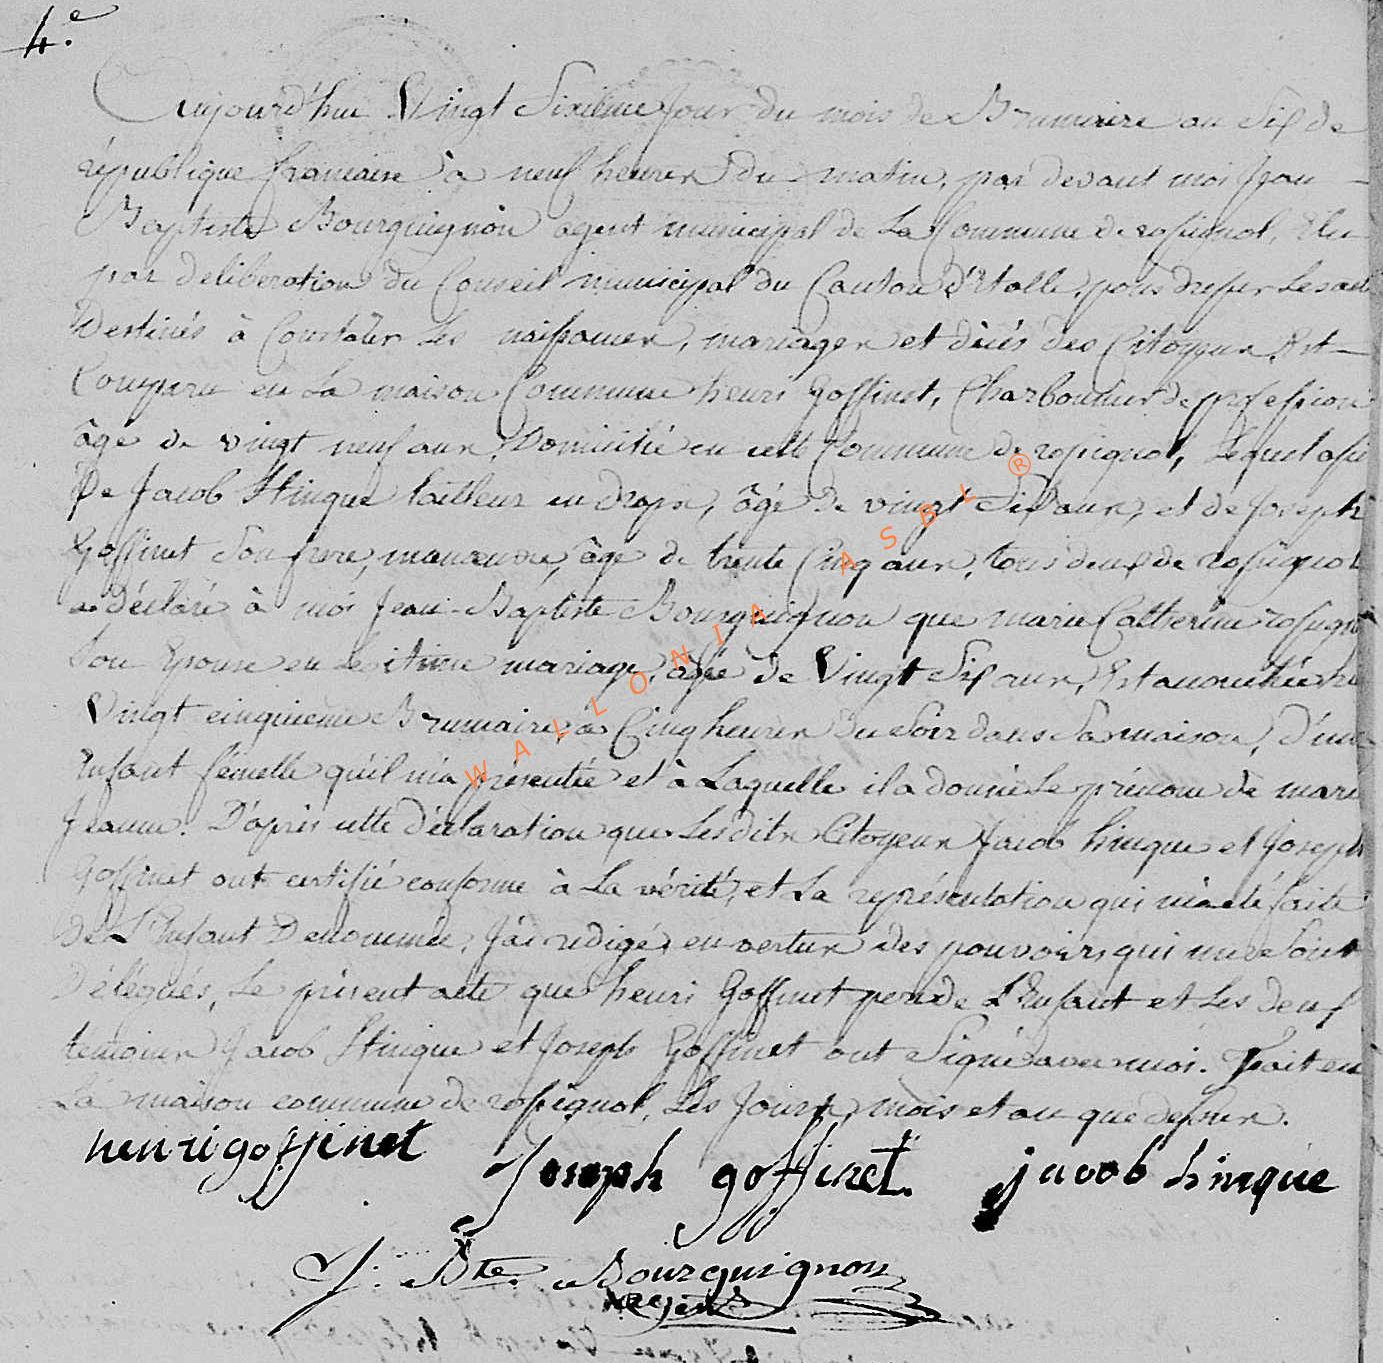 4.e
Aujourd'hui Vingt Sixieme Jour du mois de Brumaire an Six de
république francaise à neuf heures du matin, par devant moi Jean
Baptiste Bourguignon agent municipal de La Commune de rossignol, Elu
par deliberation du Conseil municipal du Canton d'Etalle, pour dresser Les acte
Destinés à Constater Les naissances, mariages et décés des Citoyens, Est
Comparu en La maison Commune henri Goffinet, Charbonnier de profession
âgé de vingt neuf ans Domicilié en cette Commune de rossignol, Lequel assi
De Jacob Hinque tailleur en draps, âgé de vingt Six ans, et de Joseph
Goffinet Son frere, manœuvre, âgé de trente Cinq ans, tous deux de rossignol
a déclaré à moi Jean-Baptiste Bourguignon que marie Catherine rossigno
Son Epouse en mariage, agée de Vingt Six ans, Est accouchée
Vingt cinquieme Brumaire, à Cinq heures du Soir dans Sa maison, d'un
Enfant femelle qu'il m'a présentée et à Laquelle il a donné Le prénom de mari
Jeanne. D'après cette déclaration que Lesdits Citoyens Jacob hinque et Joseph
Goffinet ont certifié conforme à La vérité, et La représentation qui m'a eté faite
de L'Enfant Denommée, J'ai redigé, en vertu des pouvoirs qui me Sont
Délégués, Le présent acte que henri Goffinet pere de L'Enfant et Les deux
temoins Jacob Hinque et Joseph Goffinet ont Signé avec moi. Fait en
La maison commune de rossignol, Les Jours, mois et an que dessus.
henri goffinet Joseph goffinet. jacob hinque
J: Bte. Bourguignon
agent
WALLONIA ASBL ®